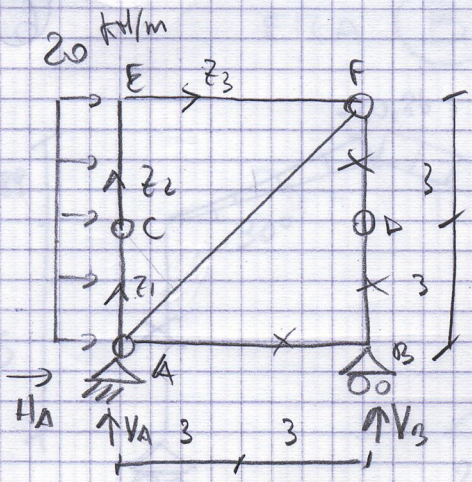 20 kN/m
E
Z3
F
Z2
3
C
D
Z1
3
A
B
HA
VA
3
3
VB